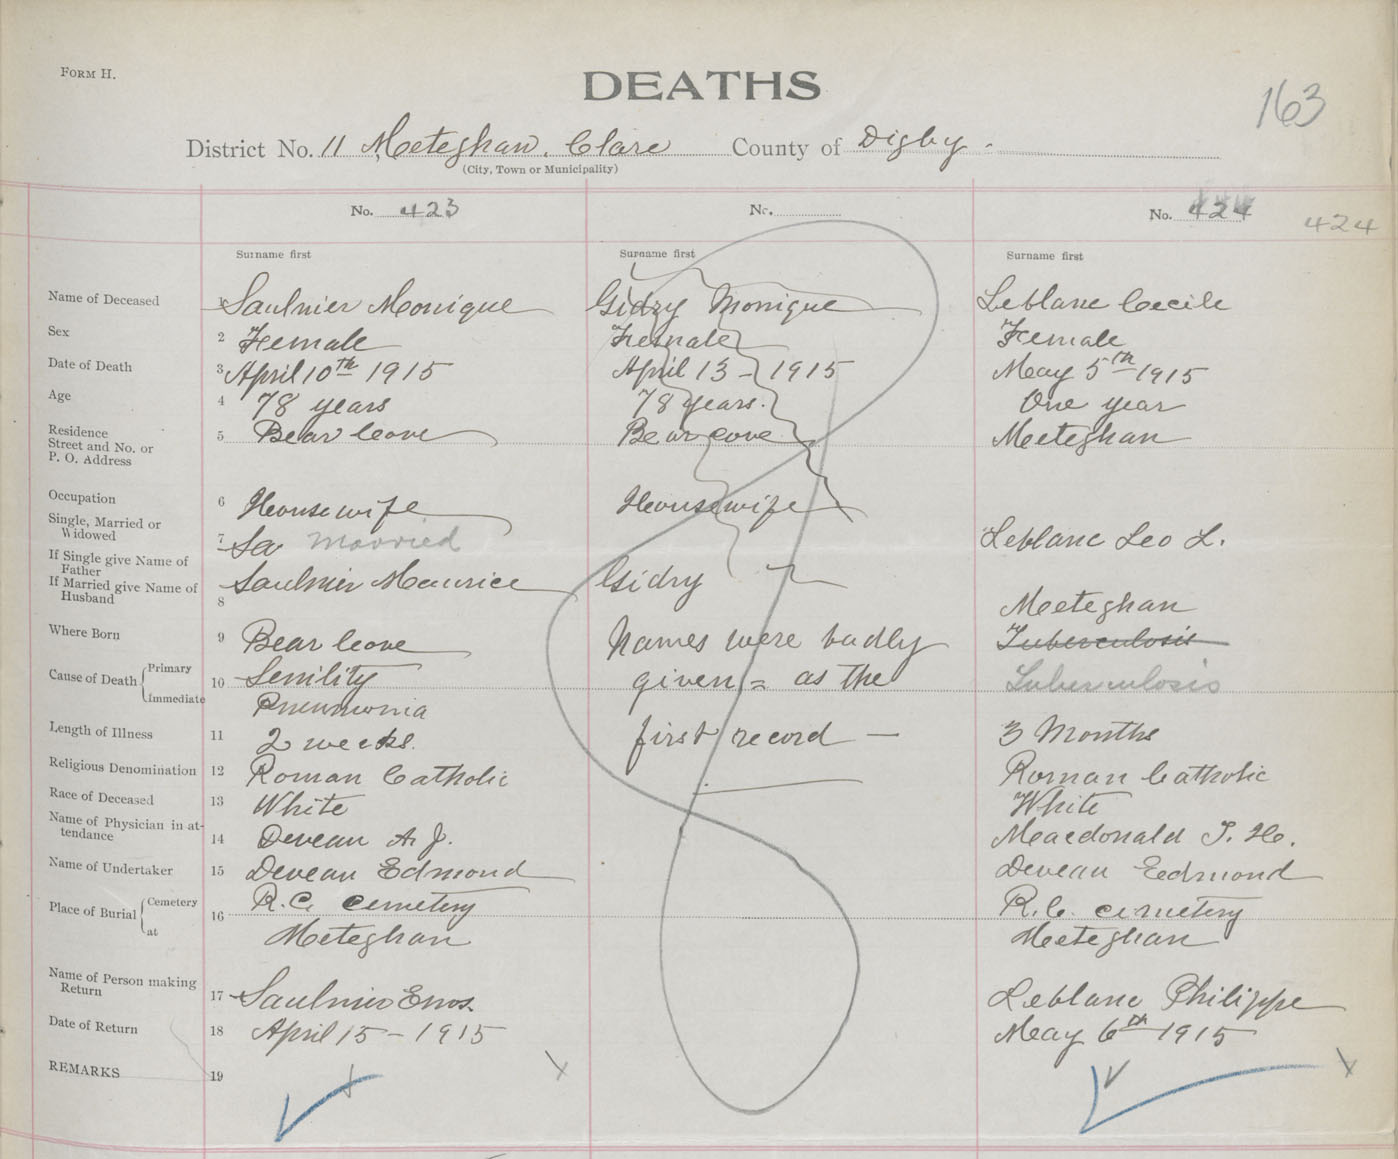 FORM H.
DEATHS
163
District No. 11 Meteghan. Clare County of Digby.
(City, Town or Municipality)
No. 423
No.
No. 424
424
Surname first
Surname first
Surname first
Name of Deceased 1 Saulnier Monique
Gidry Monique
Leblanc Cecile
Sex 2 Female
Female
Female
Date of Death 3 April 10th 1915
April 13 - 1915
May 5th 1915
Age 4 78 years
78 years.
One year
Residence
Street and No. or
P. O. Address
5 Bear Cove
Bear Cove
Meteghan
Occupation 6 Housewife
Housewife
Single, Married or
Widowed
7 Sa married
If Single give Name of
Father
Leblanc Leo L.
If Married give Name of
Husband
8 Saulnier Maurice
Gidry
Meteghan
Where Born 9 Bear Cove
Names were badly
Tuberculosis
Cause of Death { Primary
Immediate
10 Senility
Pneumonia
given = as the
Tuberculosis
Length of Illness 11 2 weeks.
first record —
3 Months
Religious Denomination 12 Roman Catholic
Roman Catholic
Race of Deceased 13 White
White
Name of Physician in at-
tendance
14 Deveau A. J.
Macdonald T. H.
Name of Undertaker 15 Deveau Edmond
Deveau Edmond
Place of Burial { Cemetery
at
16 R.C. cemetery
Meteghan
R.C. cemetery
Meteghan
Name of Person making
Return
17 Saulnier Enos.
Leblanc Philippe
Date of Return 18 April 15 - 1915
May 6th 1915
REMARKS 19